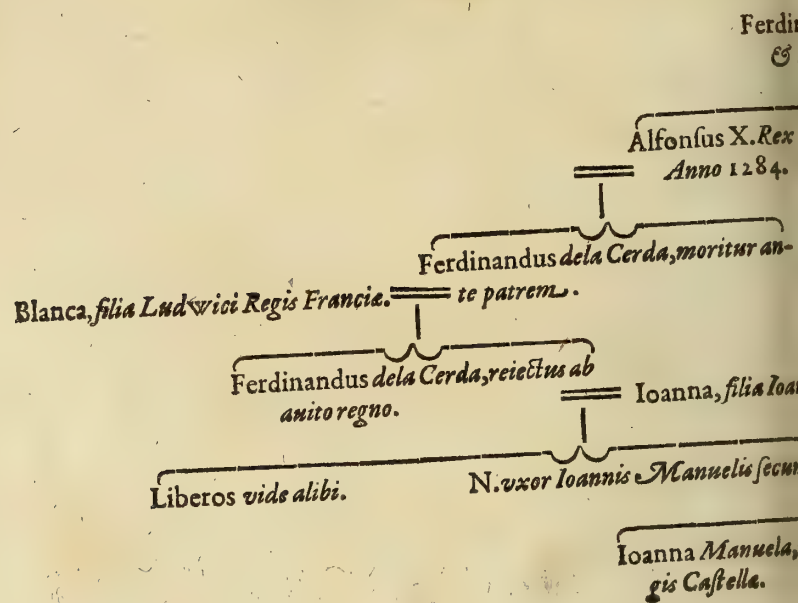 Ferdin
&
Alfonſus X. Rex
Anno 1284.
Ferdinandus dela Cerda, moritur an-
te patrem.
Blanca, filia Ludwici Regis Franciæ.
Ferdinandus dela Cerda, reiectus ab
auito regno.
Ioanna, filia Ioan
Liberos vide alibi.
N. vxor Ioannis Manuelis ſecun
Ioanna Manuela,
gis Caſtellæ.